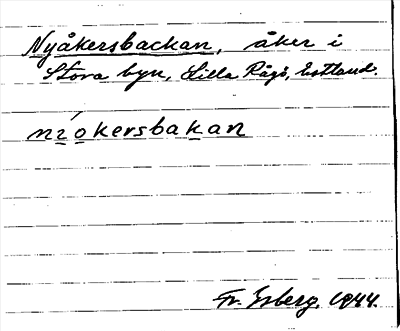 Nyåkersbackan, åker i
Stora byn, Lilla Rågö, Estland.
níokersbakan
Fr. Isberg, 1944.